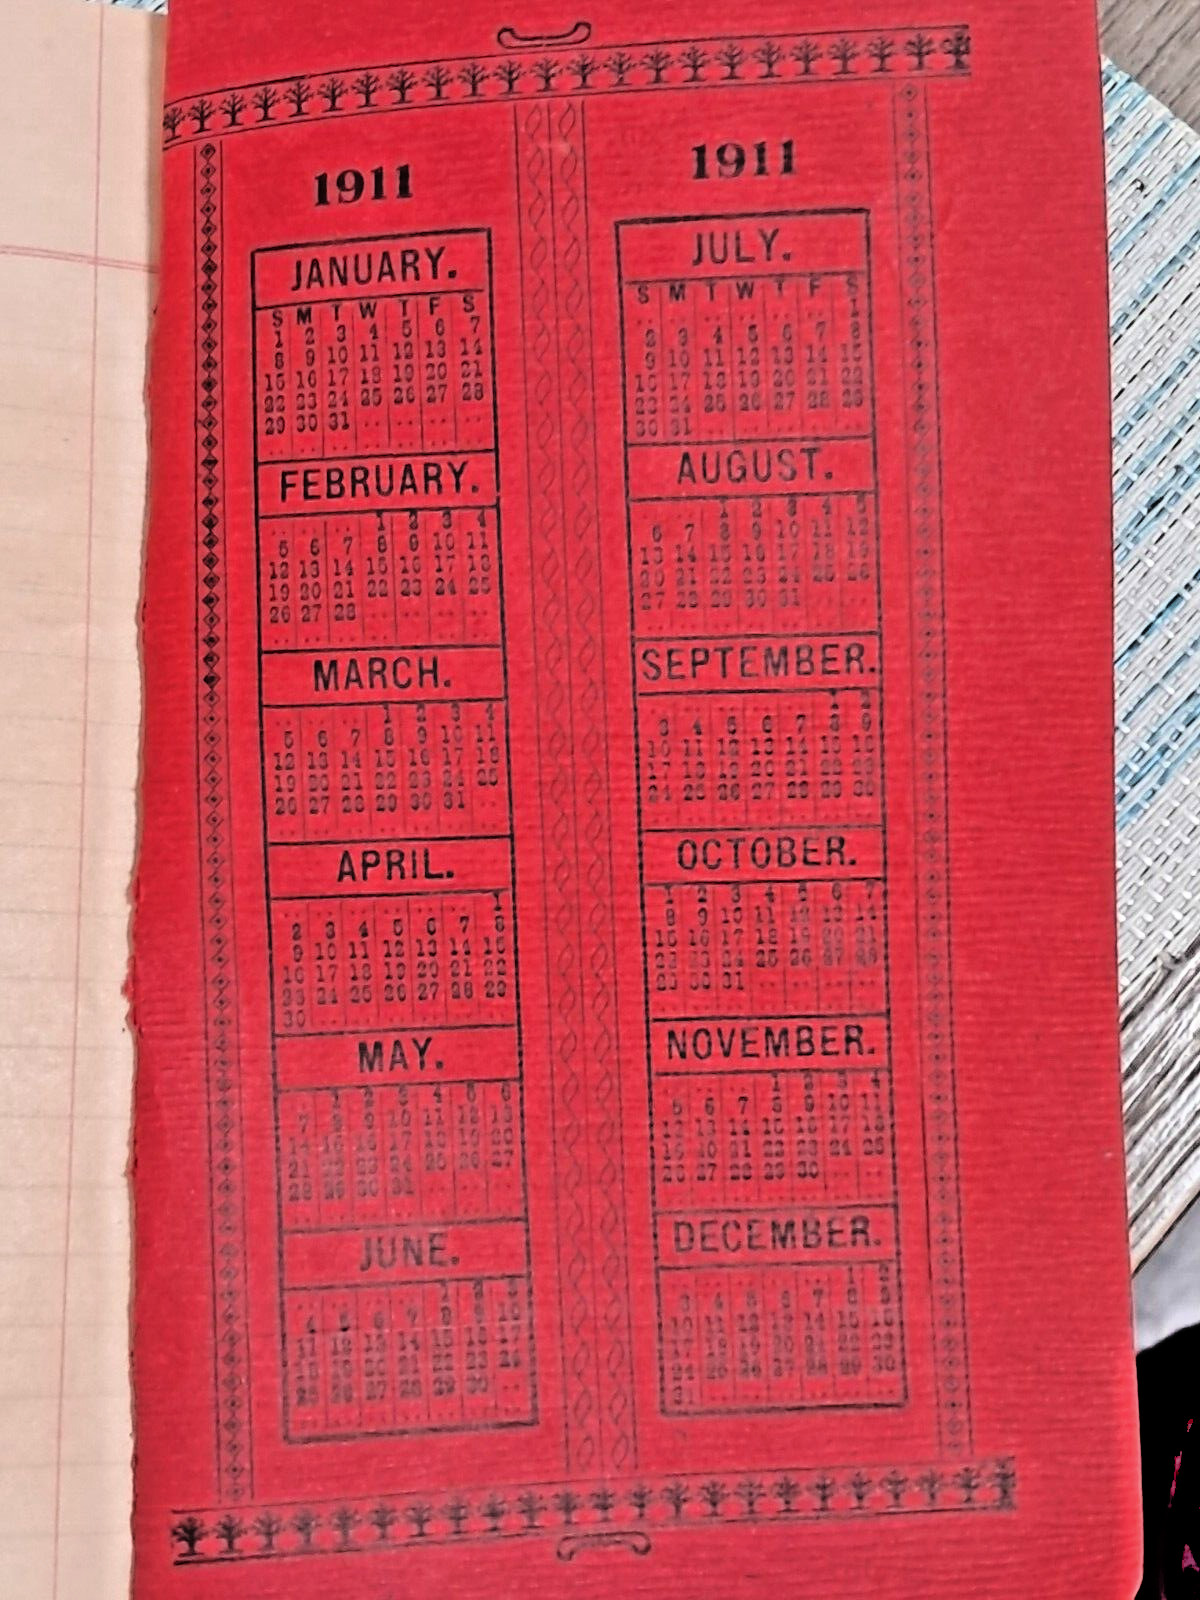 1911
JANUARY.
S M T W T F S
1 2 3 4 5 6 7
8 9 10 11 12 13 14
15 16 17 18 19 20 21
22 23 24 25 26 27 28
29 30 31
FEBRUARY.
1 2 3 4
5 6 7 8 9 10 11
12 13 14 15 16 17 18
19 20 21 22 23 24 25
26 27 28
MARCH.
1 2 3 4
5 6 7 8 9 10 11
12 13 14 15 16 17 18
19 20 21 22 23 24 25
26 27 28 29 30 31
APRIL.
1
2 3 4 5 6 7 8
9 10 11 12 13 14 15
16 17 18 19 20 21 22
23 24 25 26 27 28 29
30
MAY.
1 2 3 4 5 6
7 8 9 10 11 12 13
14 15 16 17 18 19 20
21 22 23 24 25 26 27
28 29 30 31
JUNE.
1 2 3
4 5 6 7 8 9 10
11 12 13 14 15 16 17
18 19 20 21 22 23 24
25 26 27 28 29 30
1911
JULY.
S M T W T F S
1
2 3 4 5 6 7 8
9 10 11 12 13 14 15
16 17 18 19 20 21 22
23 24 25 26 27 28 29
30 31
AUGUST.
1 2 3 4 5
6 7 8 9 10 11 12
13 14 15 16 17 18 19
20 21 22 23 24 25 26
27 28 29 30 31
SEPTEMBER.
1 2
3 4 5 6 7 8 9
10 11 12 13 14 15 16
17 18 19 20 21 22 23
24 25 26 27 28 29 30
OCTOBER.
1 2 3 4 5 6 7
8 9 10 11 12 13 14
15 16 17 18 19 20 21
22 23 24 25 26 27 28
29 30 31
NOVEMBER.
1 2 3 4
5 6 7 8 9 10 11
12 13 14 15 16 17 18
19 20 21 22 23 24 25
26 27 28 29 30
DECEMBER.
1 2
3 4 5 6 7 8 9
10 11 12 13 14 15 16
17 18 19 20 21 22 23
24 25 26 27 28 29 30
31